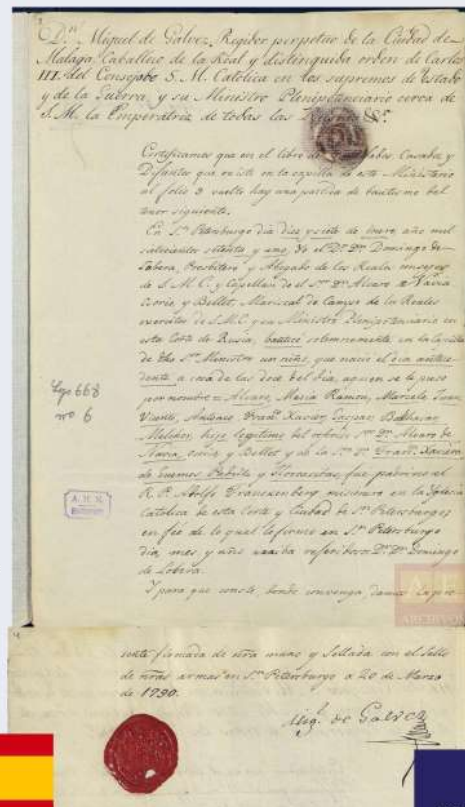 Dn. Miguel de Galvez, Regidor perpetuo de la Ciudad de
Malaga, Caballero de la Real y distinguida orden de Carlos
III. del Consejo de S. M. Catolica en los supremos de Estado
y de la Guerra, y su Ministro Plenipotenciario cerca de
S. M. la Emperatriz de todas las Rusias &c.
Certificamos que en el libro de Casados y
Difuntos que existe en la capilla de este Ministerio
al folio 3 vuelto hay una partida de bautismo del
tenor siguiente.
En Sn. Petersburgo dia diez y siete de enero, año mil
setecientos setenta y uno, Yo el Dr. Dn. Domingo de
Presbitero y Abogado de los Reales consejos
de S. M. C. y Capellan de el Sr. Dn. Alvaro de Navia
Osorio y Bellet, Mariscal de Campo de los Reales
exercitos de S. M. C. y su Ministro Plenipotenciario en
esta Corte de Rusia, bautizé solemnemente, en la Capilla
de dho Sr. Ministro un niño, que nació el dia antece-
dente a cosa de las doce del dia, a quien se le puso
por nombre = Alvaro, Maria Ramon, Marcelo, Juan
Vicente, Antonio Franco. Xavier, Gaspar Balthasar
Melchor, hijo legitimo del Sr. Dn. Alvaro de
Navia, Osorio y Bellet y de la Sra. Da. Franca. Xaviera
de Guemes Pedrito y Horcasitas, fue padrino el
R. P. Adolfo Franckenberg misionero en la Yglesia
Catolica de esta Corte y Ciudad de Sn. Petersburgo,
en fée de lo qual lo firmé en Sn. Petersburgo
dia, mes, y año arriba referidos = Dr. Dn. Domingo
de
Y para que conste, donde convenga, damos la pre-
Lego 668
no 6
A. H. N.
ARCHIVOS
sente firmada de nra mano y sellada con el sello
de nras armas en Sn. Petersburgo a 20 de Marzo
de 1790.
Migl. de Galvez